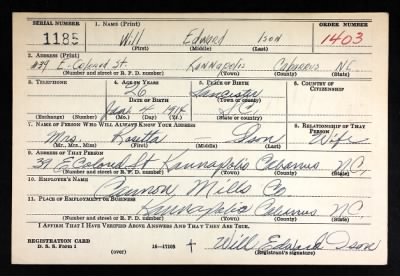 SERIAL NUMBER 1. NAME (Print) ORDER NUMBER
1185 Will Edward Ison 1403
(First) (Middle) (Last)
2. ADDRESS (Print)
#39 E. Colored St. Kannapolis Cabarrus N.C.
(Number and street or R. F. D. number) (Town) (County) (State)
3. TELEPHONE 4. AGE IN YEARS 5. PLACE OF BIRTH 6. COUNTRY OF CITIZENSHIP
26 Lancaster
DATE OF BIRTH (Town or county)
1914 S.C.
(Exchange) (Number) (Mo.) (Day) (Yr.) (State or country)
7. NAME OF PERSON WHO WILL ALWAYS KNOW YOUR ADDRESS 8. RELATIONSHIP OF THAT PERSON
Mrs. Rosetta Ison Wife
(Mr., Mrs., Miss) (First) (Middle) (Last)
9. ADDRESS OF THAT PERSON
39 E Colored St Kannapolis Cabarrus N.C.
(Number and street or R. F. D. number) (Town) (County) (State)
10. EMPLOYER'S NAME
Cannon Mills Co
11. PLACE OF EMPLOYMENT OR BUSINESS
Kannapolis Cabarrus N.C.
(Number and street or R. F. D. number) (Town) (County) (State)
I AFFIRM THAT I HAVE VERIFIED ABOVE ANSWERS AND THAT THEY ARE TRUE.
REGISTRATION CARD
D. S. S. Form 1 (over) 16—17105 Will Edward Ison
(Registrant's signature)